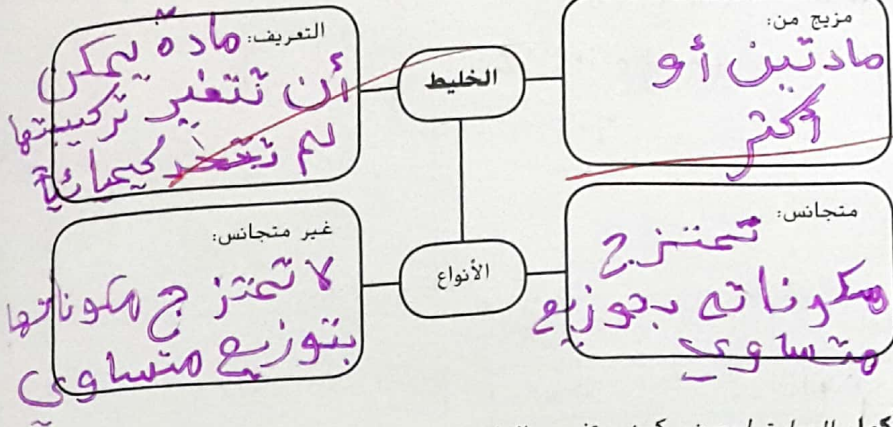 مزيج من:
مادتين أو
أكتر
الخليط
التعريف: مادة يمكن
أن تتغير تركيبتها
لم تتحد كيميائياً
متجانس:
تمتزج
مكوناته بتوزيع
متساوي
الأنواع
غير متجانس:
لا تمتزج مكوناتها
بتوزيع متساوي